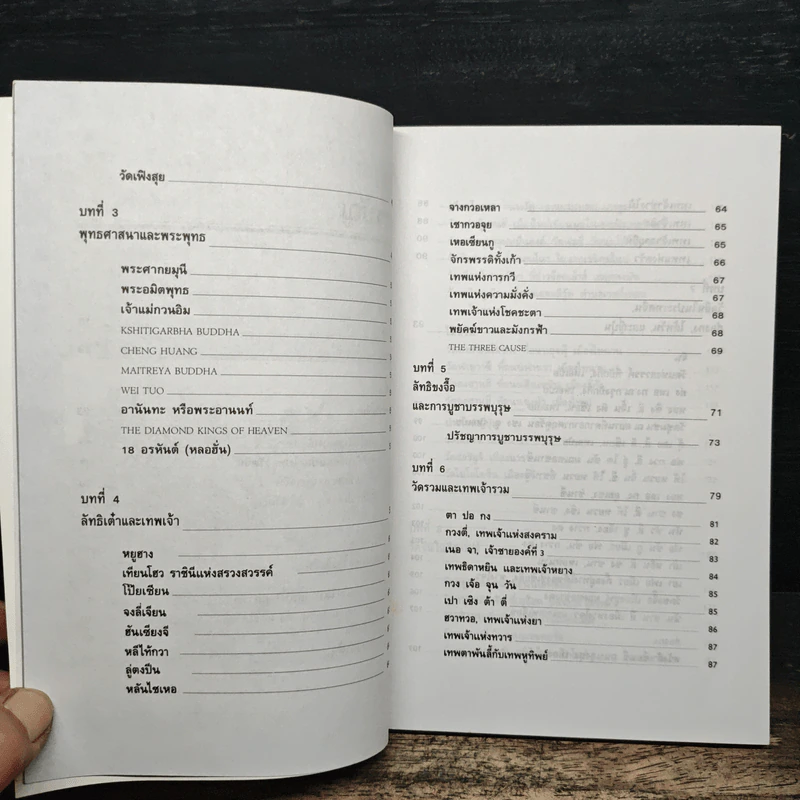 วัดเฟิงสุย
บทที่ 3
พุทธศาสนาและพระพุทธ
พระศากยมุนี
พระอมิตพุทธ
เจ้าแม่กวนอิม
KSHITIGARBHA BUDDHA
CHENG HUANG
MAITREYA BUDDHA
WEI TUO
อานันทะ หรือพระอานนท์
THE DIAMOND KINGS OF HEAVEN
18 อรหันต์ (หลอฮั่น)
บทที่ 4
ลัทธิเต๋าและเทพเจ้า
หยูฮาง
เทียนโฮว ราชินีแห่งสรวงสวรรค์
โป๊ยเซียน
จงลี่เจียน
ฮันเซียงจี
หลีไท้กวา
ลู่ตงปิน
หลันไชเหอ
จางกวอเหลา 64
เชากวอจุย 65
เหอเซียนกู 65
จักรพรรดิทั้งเก้า 66
เทพแห่งการกวี 67
เทพแห่งความมั่งคั่ง 67
เทพเจ้าแห่งโชคชะตา 68
พยัคฆ์ขาวและมังกรฟ้า 68
THE THREE CAUSE 69
บทที่ 5
ลัทธิขงจื๊อ
และการบูชาบรรพบุรุษ 71
ปรัชญาการบูชาบรรพบุรุษ 73
บทที่ 6
วัดรวมและเทพเจ้ารวม 79
ตา ปอ กง 81
กวงตี่, เทพเจ้าแห่งสงคราม 82
เนอ จา, เจ้าชายองค์ที่ 3 83
เทพธิดาหยิน และเทพเจ้าหยาง 84
กวง เจ้อ จุน วัน 85
เปา เชิง ต้า ตี่ 85
ฮวาทวอ, เทพเจ้าแห่งยา 86
เทพเจ้าแห่งทวาร 87
เทพตาพันลี้กับเทพหูทิพย์ 87